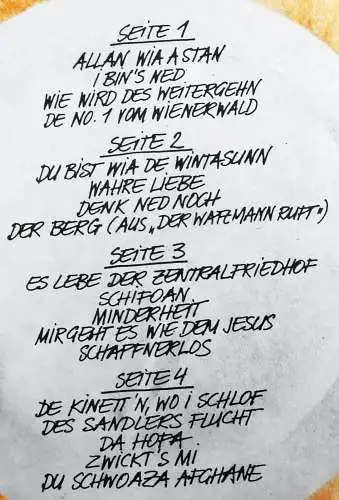 SEITE 1
ALLAN WIA A STAN
I BIN'S NED
WIE WIRD DES WEITERGEHN
DE NO. 1 VOM WIENERWALD
SEITE 2
DU BIST WIA DE WINTASUNN
WAHRE LIEBE
DENK NED NOCH
DER BERG (AUS „DER WATZMANN RUFT")
SEITE 3
ES LEBE DER ZENTRALFRIEDHOF
SCHIFOAN
MINDERHEIT
MIR GEHT ES WIE DEM JESUS
SCHAFFNERLOS
SEITE 4
DE KINETT'N, WO I SCHLOF
DES SANDLERS FLUCHT
DA HOFA
ZWICKT'S MI
DU SCHWOAZA AFGHANE